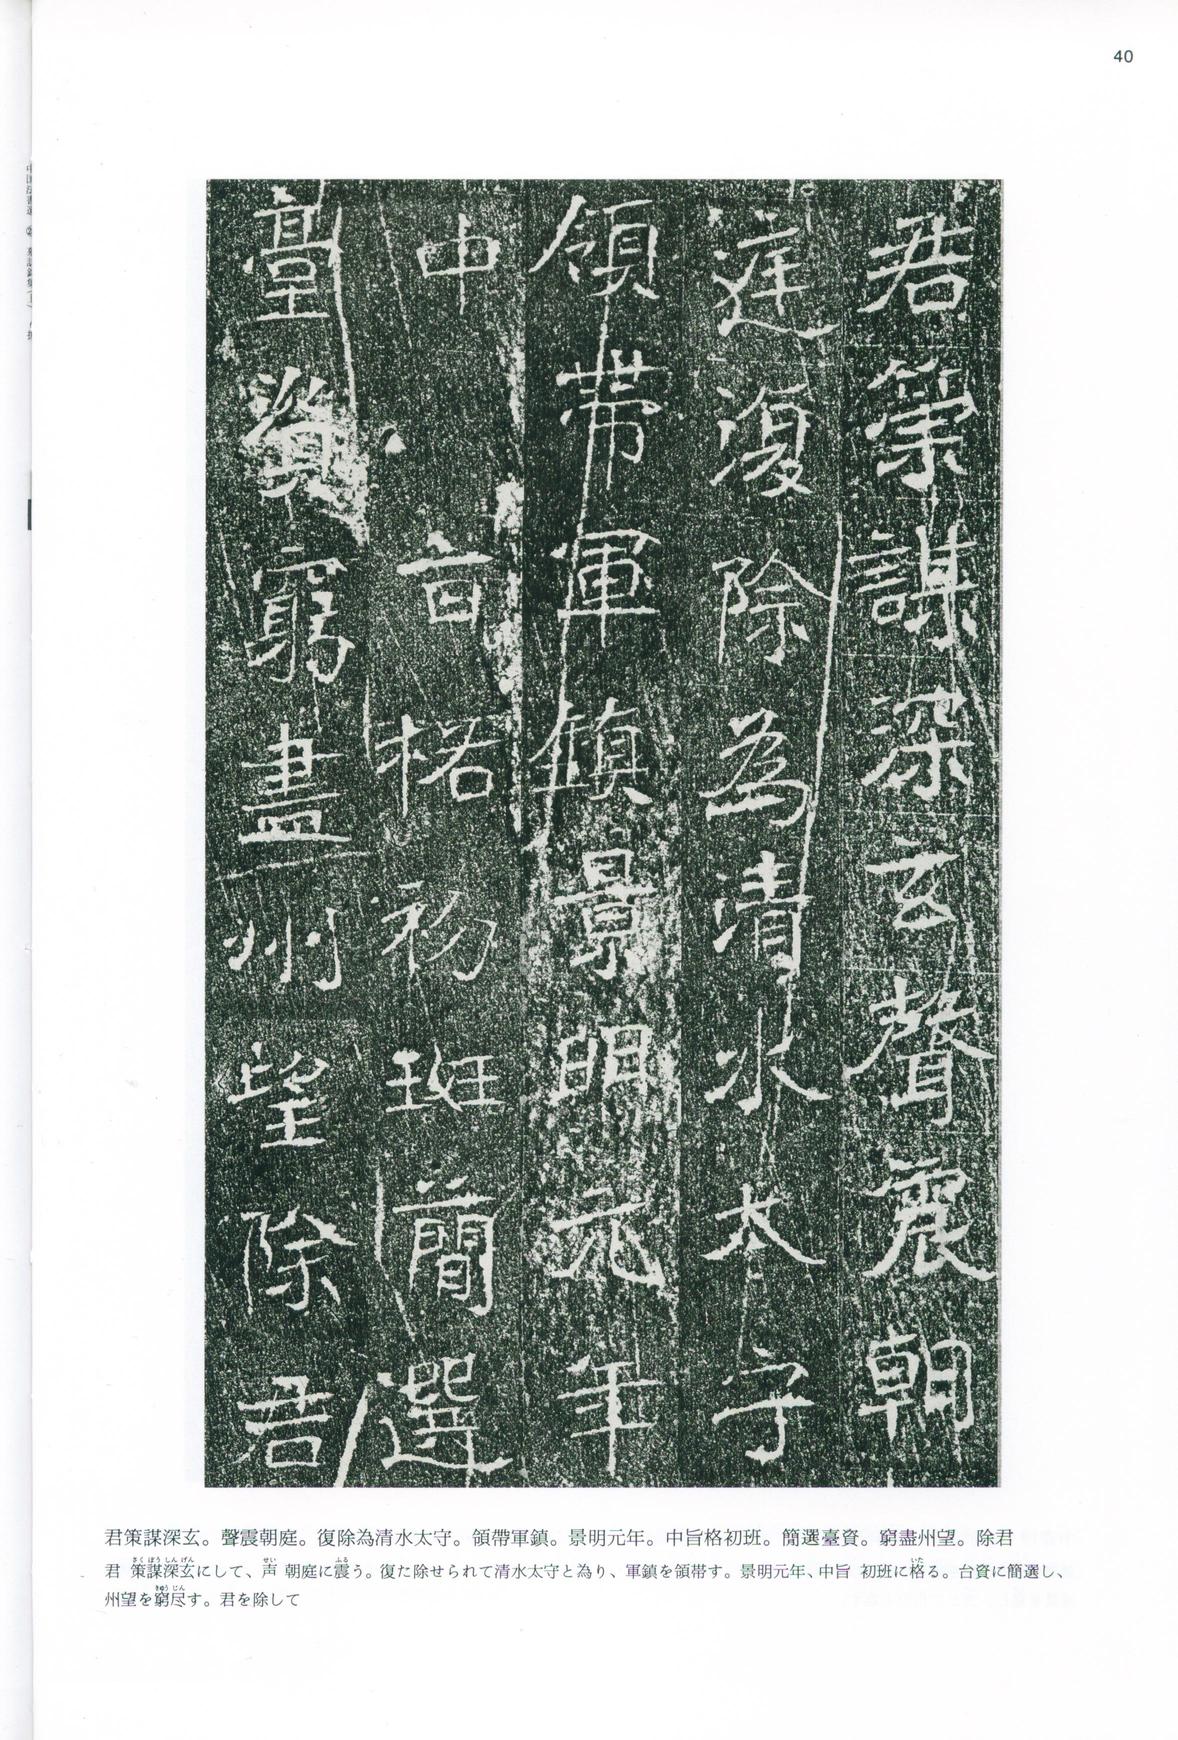 40
君策謀深玄聲震朝
庭復除為清水太守
領帶軍鎮景明元年
中旨格初班簡選
臺資窮盡州望除君
君策謀深玄。聲震朝庭。復除為清水太守。領帶軍鎮。景明元年。中旨格初班。簡選臺資。窮盡州望。除君
君 策謀深玄にして、声 朝庭に震う。復た除せられて清水太守と為り、軍鎮を領帯す。景明元年、中旨 初班に格る。台資に簡選し、
州望を窮尽す。君を除して